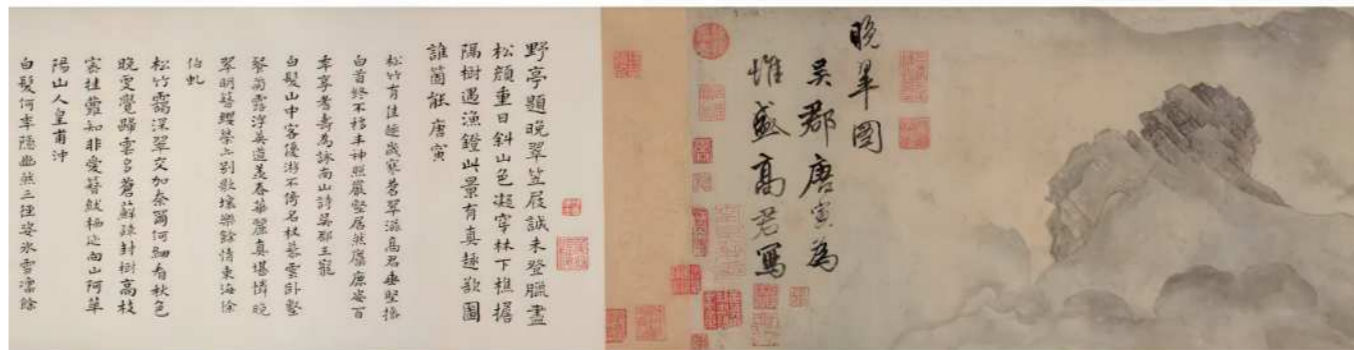 晚翠圖
吳郡唐寅為
惟盛高君寫
野亭題晚翠笠屐誠未登臘盡
松顏重日斜山色凝穿林下樵擔
隔樹遇漁鐙此景有真趣歌圖
誰箇能 唐寅
松竹有佳趣歲寒蒼翠滋高君垂堅操
白首終不移丰神照巖壑居然麋鹿姿百
年享耆壽為詠南山詩吳郡王寵
白髮山中客優游不倚名杖藜雲卧壑
餐菊露浮英道羨春華麗真堪憐晚
翠明簪纓榮與別歌壤樂餘情東海徐
伯虬
松竹靄深翠交加奈爾何細看秋色
晚更覺歸雲多蒼蘚疎封樹高枝
密挂蘿知非愛簪紱栖迹向山阿華
陽山人皇甫沖
白髮何年隱幽然三徑姿冰雪凜餘